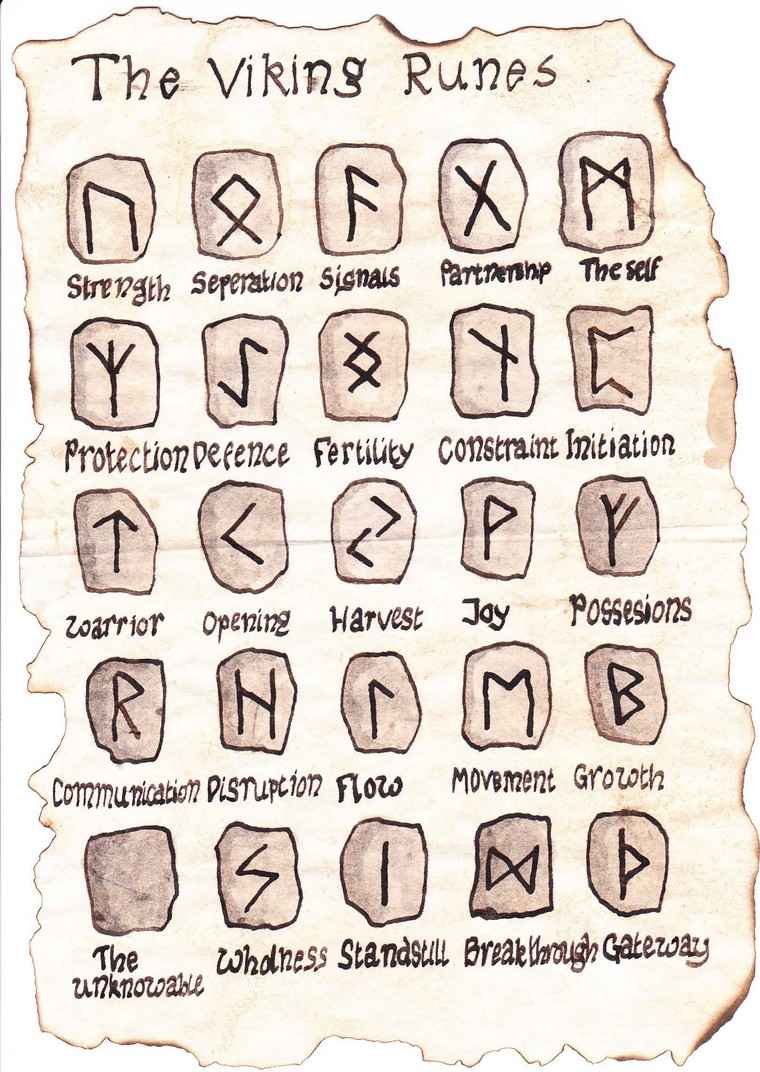 The Viking Runes
ᚢ ᛟ ᚨ ᚷ ᛗ
Strength Seperation Signals Partnership The self
ᛉ ᛇ ᛝ ᚾ ᛈ
Protection Defence Fertility Constraint Initiation
ᛏ ᚲ ᛃ ᚹ ᚠ
Warrior Opening Harvest Joy Possesions
ᚱ ᚺ ᛚ ᛖ ᛒ
Communication Disruption Flow Movement Growth
ᛊ ᛁ ᛞ ᚦ
The Wholness Standstill Breakthrough Gateway
unknowable